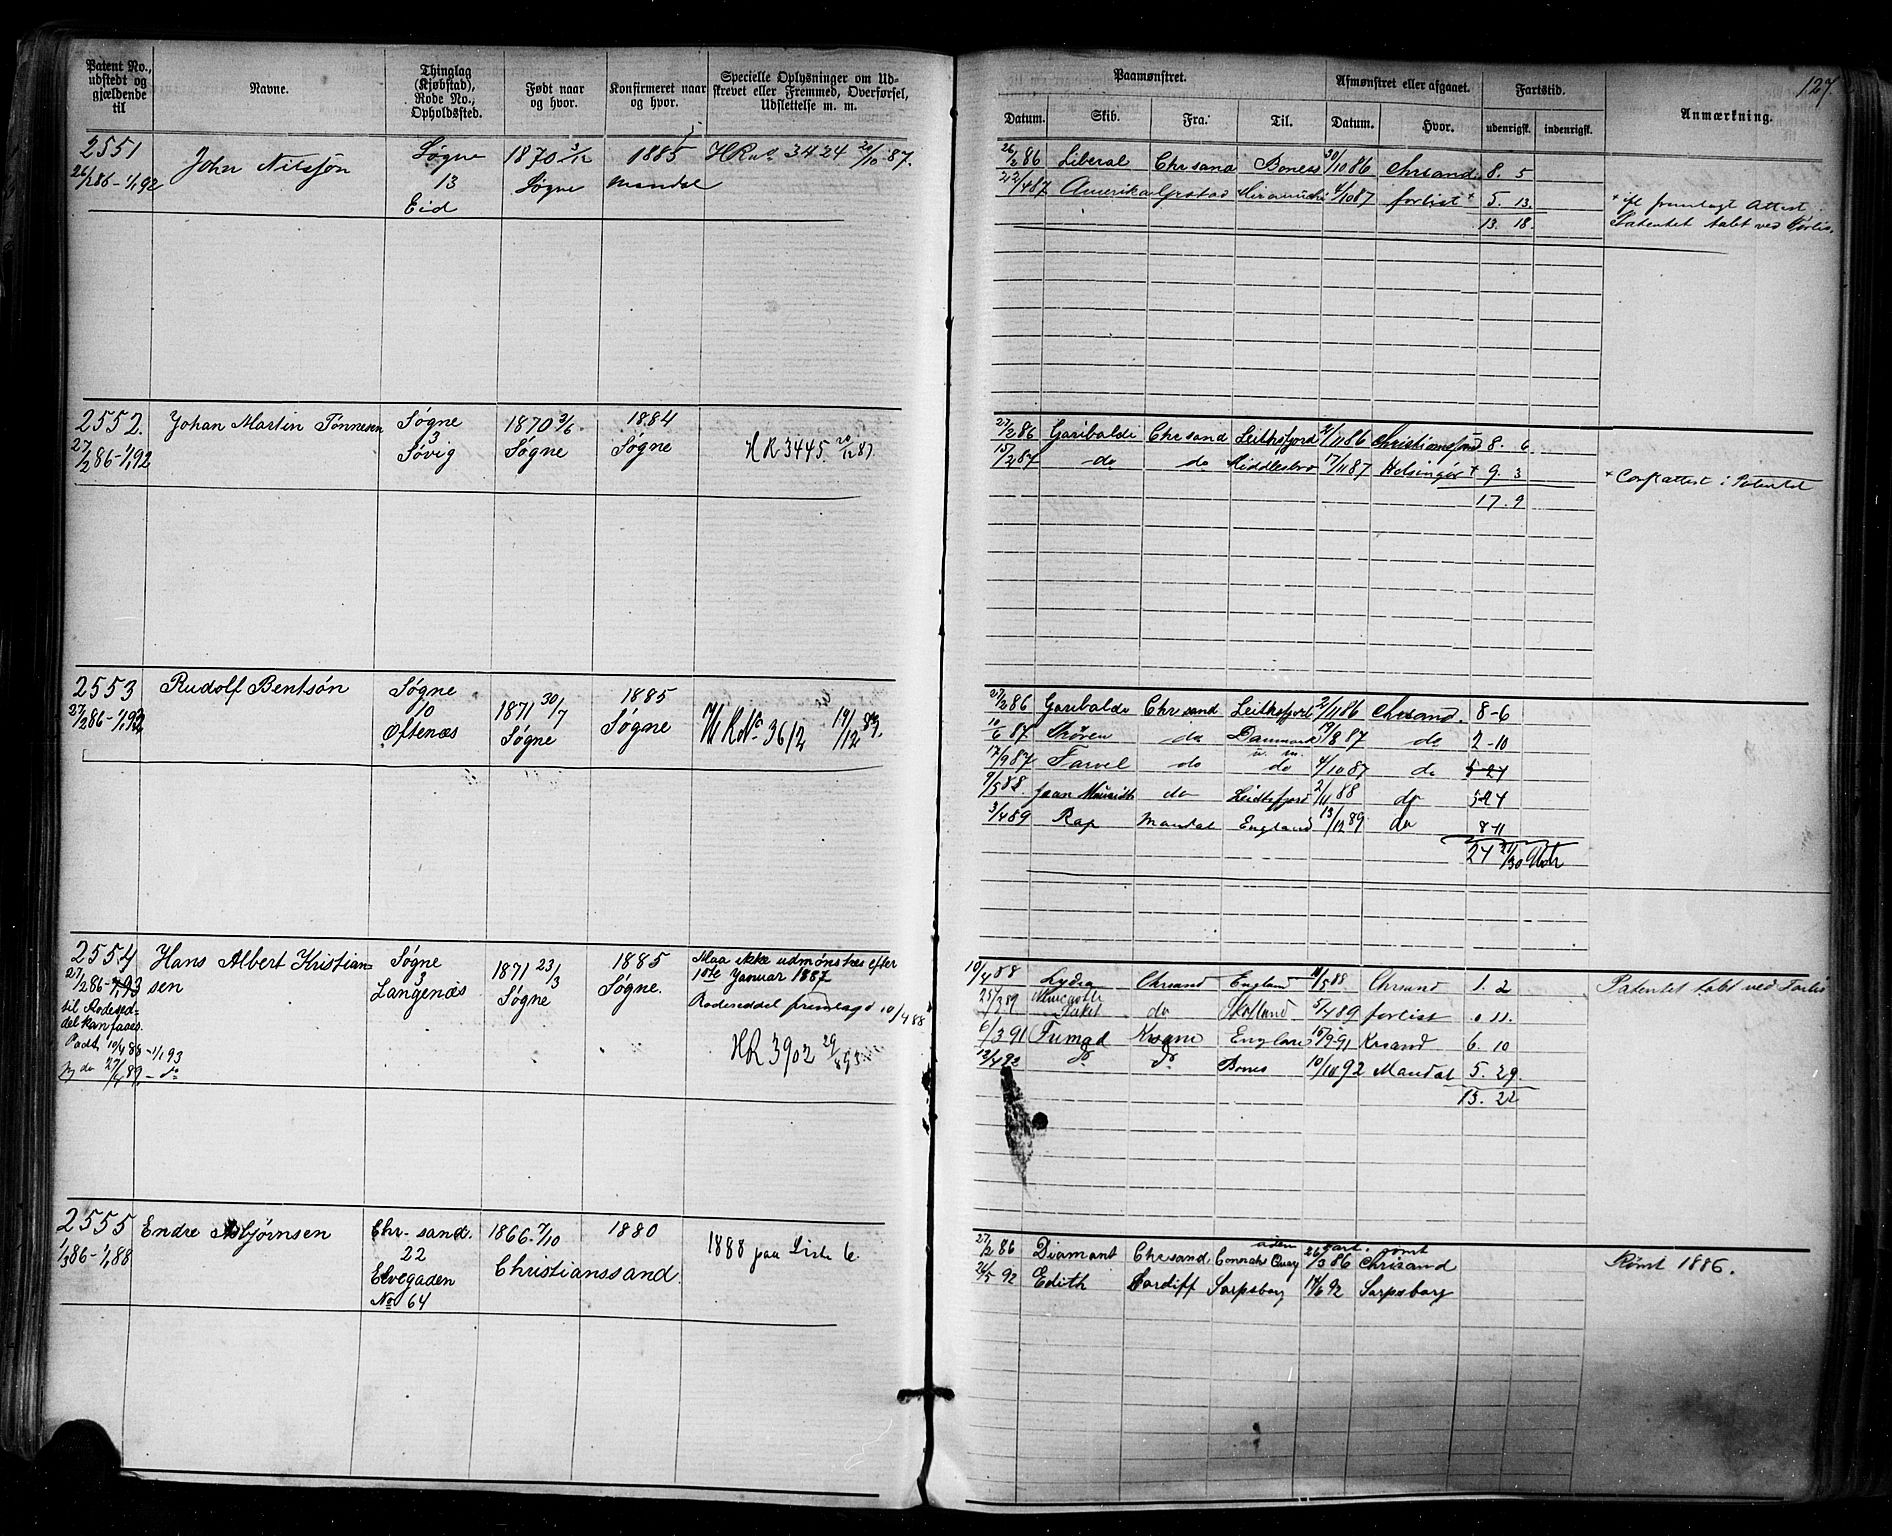 127.
Patent No., udstedt og gjældende til
Navne.
Thinglag (Kjøbstad), Rode No., Opholdssted.
Født naar og hvor.
Konfirmeret naar og hvor.
Specielle Oplysninger om Udskrevet eller Fremmed, Overførsel, Udslettelse m. m.
Paamønstret.
Afmønstret eller afgaaet.
Fartstid.
Anmærkning.
Datum. Skib. Fra. Til. Datum. Hvor. udenrigsk. indenrigsk.
2551 John Nilssøn Søgne 1870 3/12 1885 HR No 3424 20/10 87.
26/2 86 - 1/1 92 13 Søgne Mandal
Eid
26/2 86 Liberal Chrsand Boness 30/10 86 Chrsand. 8. 5
22/4 87 Amerika Grstad Miramichi 4/10 87 forlist + 5. 13.
13. 18.
+ ifl fremlagt Attest
Patentet tabt ved Forlis.
2552. Johan Martin Tønnesen Søgne 1870 3/6 1884
27/2 86 - 1/1 92 3 Søgne Søgne HR 3445. 20/12 87
Søvig
27/2 86 Garibaldi Chrsand Leithsfjord 2/11 86 Christiansfjord 8. 6
15/2 87 do do Middlesbro 17/11 87 Helsingør + 9. 3
17. 9
+ Consattest i Patentet
2553 Rudolf Bentsøn Søgne 1871 30/7 1885
27/2 86 - 1/1 92 10 Søgne Søgne HR No 3612 19/12 89.
Oftenæs
27/2 86 Garibaldi Chrsand Leithsfjord 2/11 86 Chrsand. 8-6
10/6 87 Thøren do Danmark 19/8 87 do 2-10
17/9 87 Farvel do do 4/10 87 do 5-24
9/5 88. Jean Mauridt do Leithsfjord 2/11 88 do 5-24
3/4 89 Rap Mandal England 13/12 89 do 8-11
24 21/30
2554 Hans Albert Kristiansen Søgne 1871 23/3 1885 Maa ikke udmønstres efter
27/2 86 - 1/1 93 3 Søgne Søgne. 1ste Januar 1887
til Rodeseddel kan faaes. Langenæs Rodeseddel fremlagt 10/4 88
Padt. 10/4 88 - 1/1 93 HR 3902 29/
Ny do 27/4 89 - do
10/4 88 Lydia Chrsand England 11/5 88 Chrsand 1. 2
25/3 89 Newcastle Paket do Skotland 5/4 89 forlist 0 11.
6/3 91 Fumad Krsand England 15/9 91 Krsand 6. 10
12/4 92 do do Bones 10/10 92 Mandal 5. 29.
13. 22
Patentet tabt ved Forlis
2555 Endre Asbjørnsen Chr. sand. 1866. 7/10 1880 1888 paa Liste 6.
1/3 86 - 1/1 88 22 Christianssand
Elvegaden
No 64
27/2 86 Diamant Chrsand Connah Quay 26/3 86 Chrisand
uden Fart. rømt
24/5 92 Edith Cardiff Sarpsborg 14/6 92 Sarpsborg
Rømt 1886.